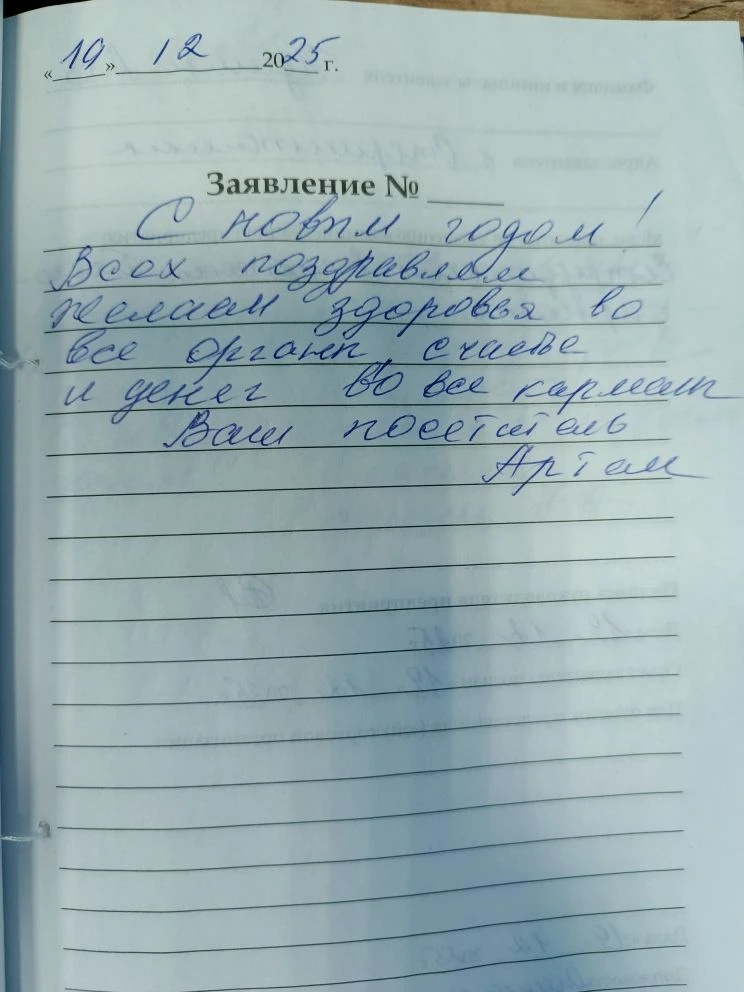 «19» 12 2025 г.
Заявление № ____
С новым годом!
Всех поздравляем
желаем здоровья во
все органы, счастье
и денег во все карманы
Ваш посетитель
Артем